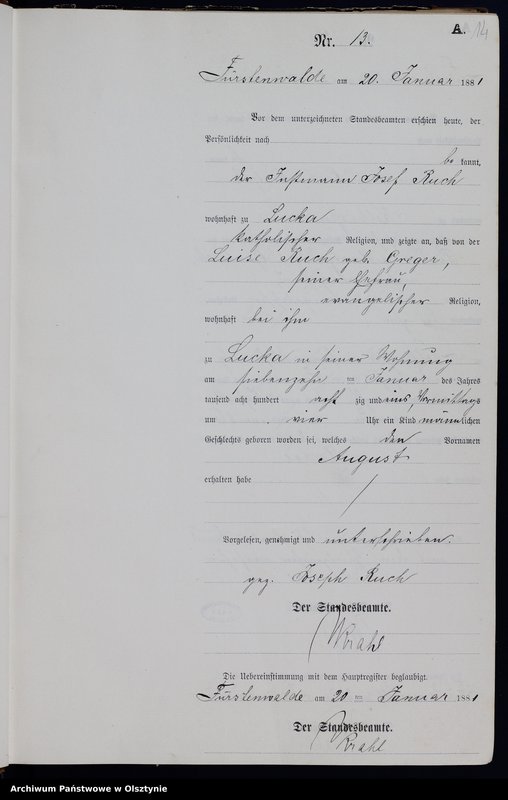 A. 14
Nr. 13.
Fürstenwalde am 20. Januar 1881
Vor dem unterzeichneten Standesbeamten erschien heute, der
Persönlichkeit nach
bekannt,
der Instmann Josef Ruch
wohnhaft zu Lucka
katholischer Religion, und zeigte an, daß von der
Luise Ruch geb. Greger,
seiner Ehefrau,
evangelischer Religion,
wohnhaft bei ihm
zu Lucka in seiner Wohnung
am siebenzehn ten Januar des Jahres
tausend acht hundert acht zig und eins, Vormittags
um vier Uhr ein Kind männlichen
Geschlechts geboren worden sei, welches den Vornamen
August
erhalten habe
Vorgelesen, genehmigt und unterschrieben.
gez. Joseph Ruch
Der Standesbeamte.
Krahl
Die Uebereinstimmung mit dem Hauptregister beglaubigt.
Fürstenwalde am 20 ten Januar 1881
Der Standesbeamte.
Krahl
Archiwum Państwowe w Olsztynie